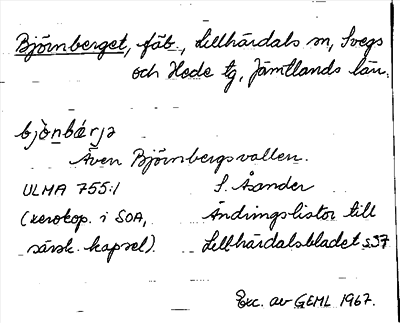 Björnberget, fäb., Lillhärdals sn, Svegs
och Hede tg, Jämtlands län.
bjò̀nbǽrjə
Även Björnbergsvallen.
ULMA 755:1 S. Åsander
(xerokop. i SOA, Ändringslistor till
särsk. kapsel). Lillhärdalsbladet s. 37
Exc. av GEML 1967.